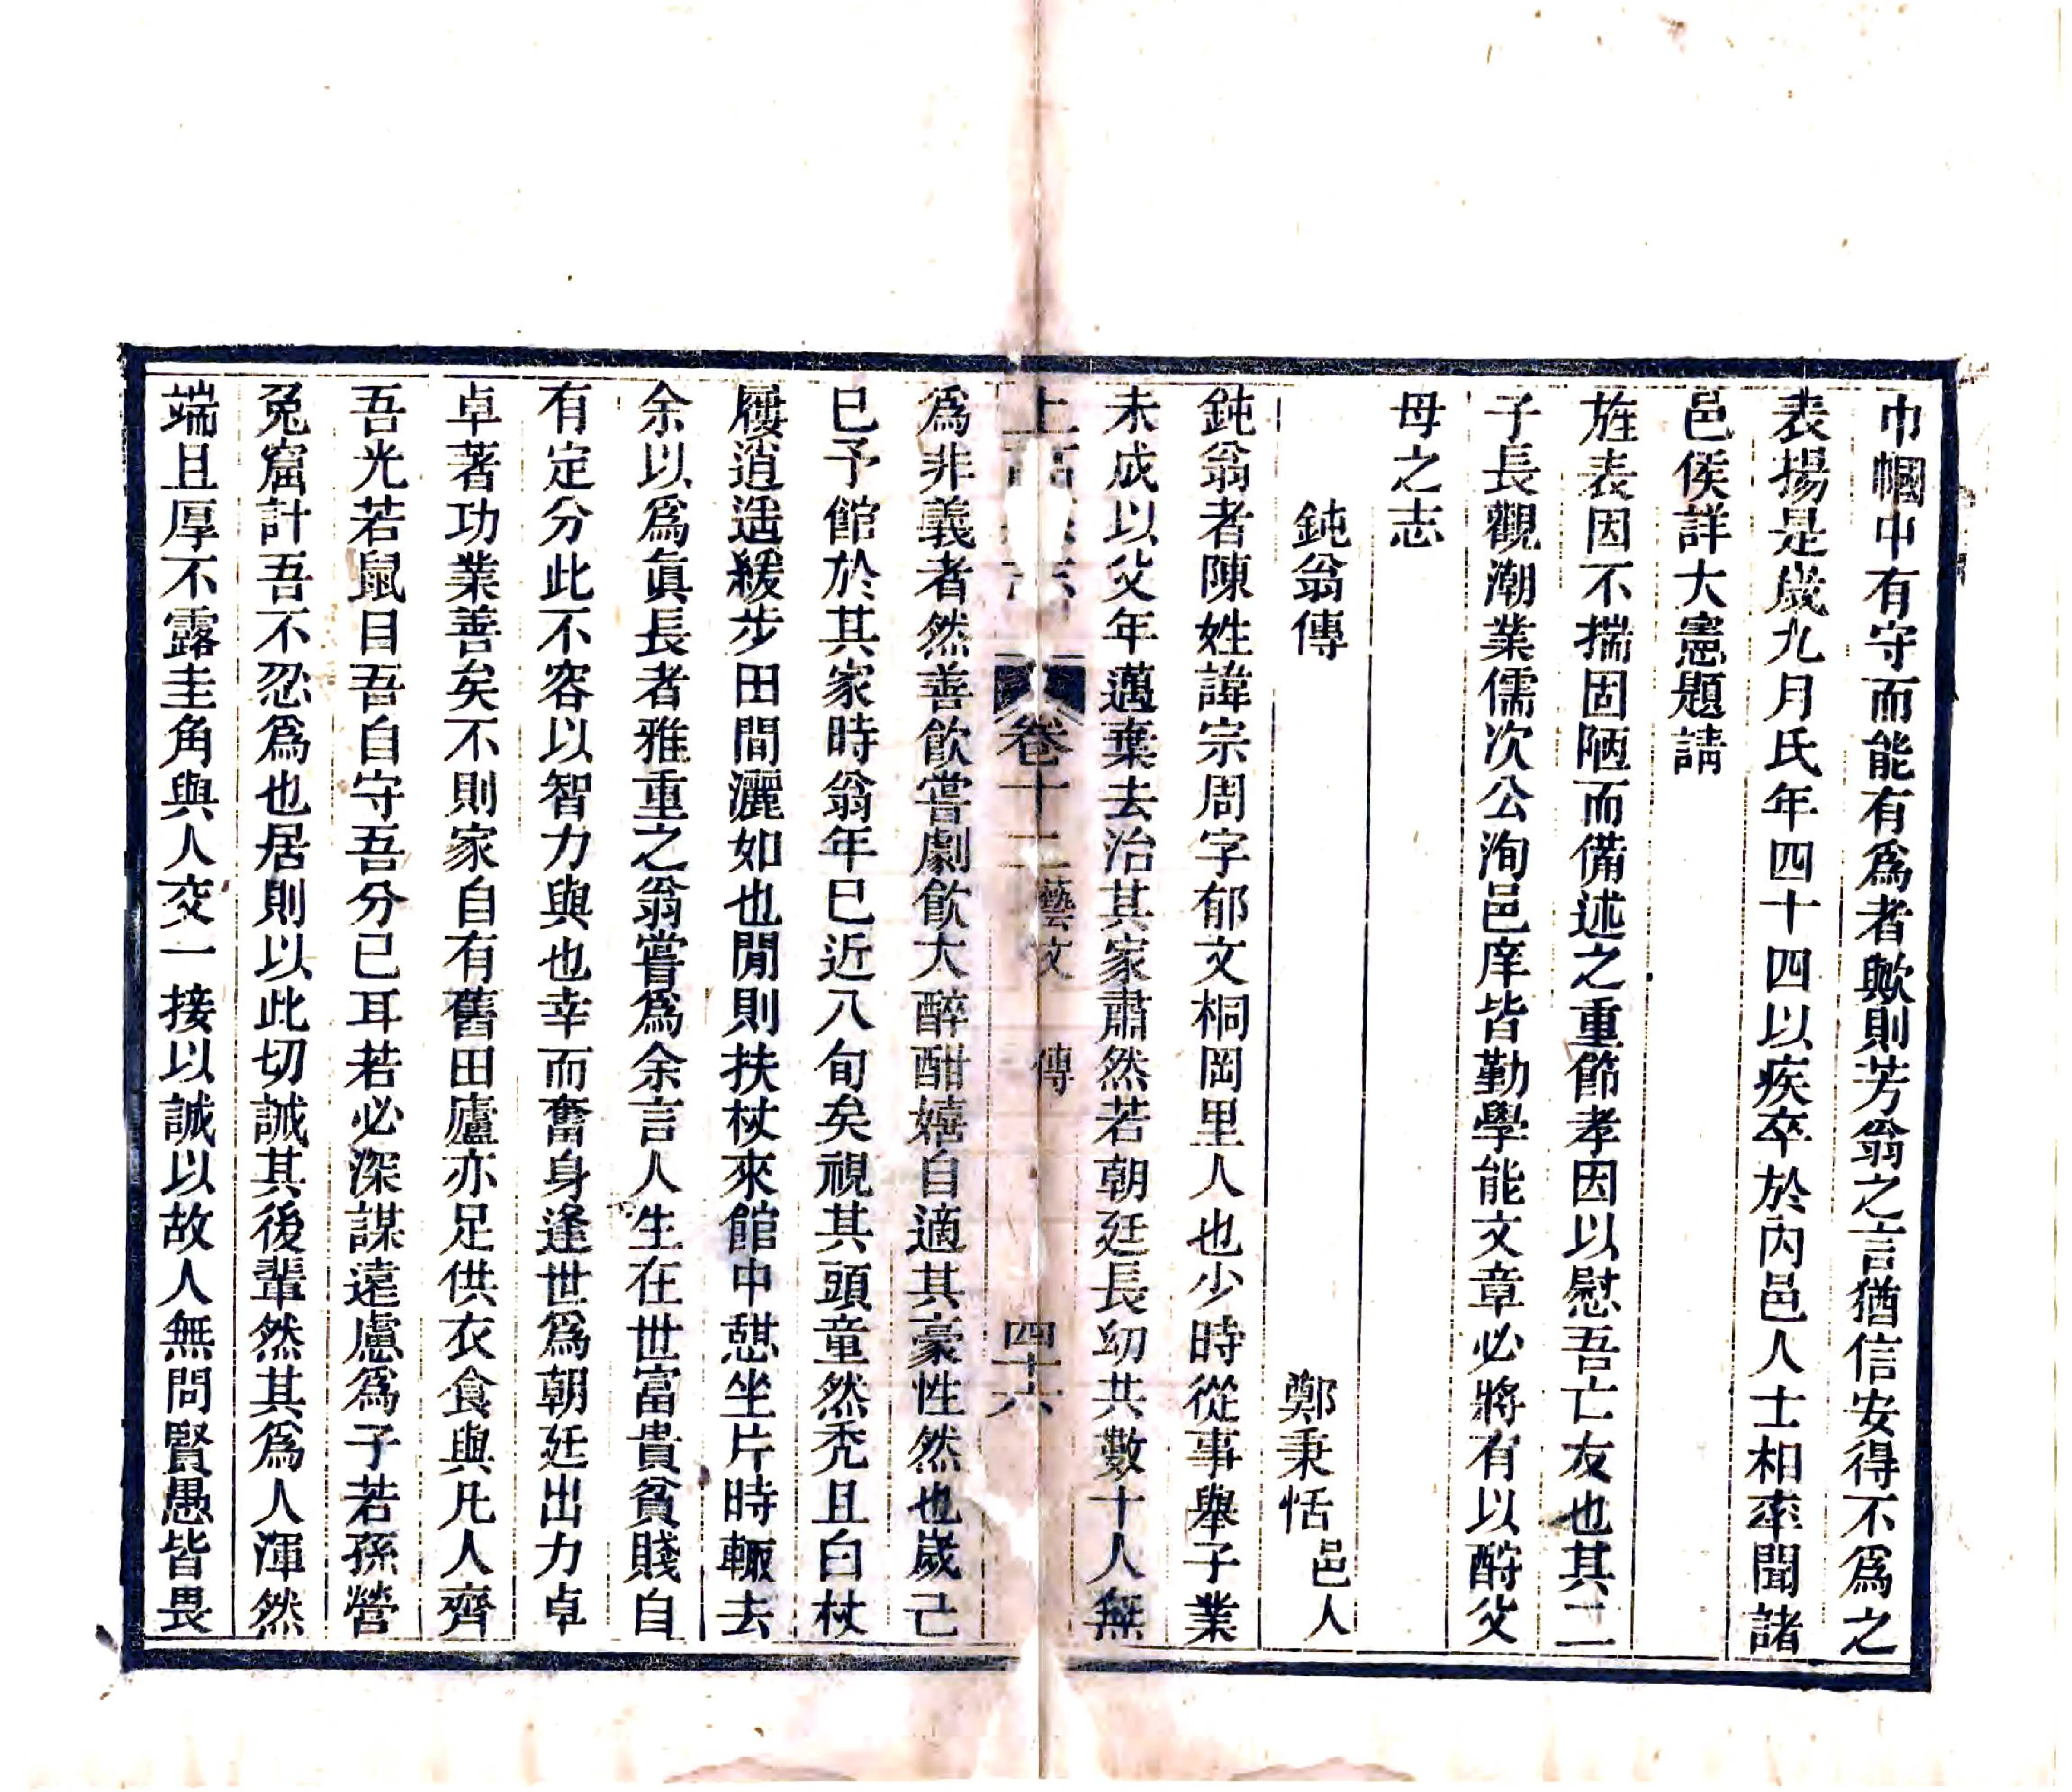 巾幗中有守而能有為者歟則芳翁之言猶信安得不為之
表揚是歲九月氏年四十四以疾卒於內邑人士相率聞諸
邑侯詳大憲題請
旌表因不揣固陋而備述之重節孝因以慰吾亡友也其二
子長觀潮業儒次公洵邑庠皆勤學能文章必將有以酧父
母之志
鈍翁傳
鄭秉恬邑人
鈍翁者陳姓諱宗周字郁文桐岡里人也少時從事舉子業
未成以父年邁棄去治其家肅然若朝廷長幼共數十人無
上
卷十二
藝文
傳
四十六
為非義者然善飲嘗劇飲大醉酣嬉自適其豪性然也歲己
巳予館於其家時翁年巳近八旬矣視其頭童然禿且白杖
屨逍遙緩步田間灑如也閒則扶杖來館中憇坐片時輙去
余以為眞長者雅重之翁嘗為余言人生在世富貴貧賤自
有定分此不容以智力與也幸而奮身逢世為朝廷出力卓
卓著功業善矣不則家自有舊田廬亦足供衣食與凡人齊
吾光若鼠目吾自守吾分已耳若必深謀遠慮為子若孫營
兔窟計吾不忍為也居則以此切誡其後輩然其為人渾然
端且厚不露圭角與人交一接以誠以故人無問賢愚皆畏